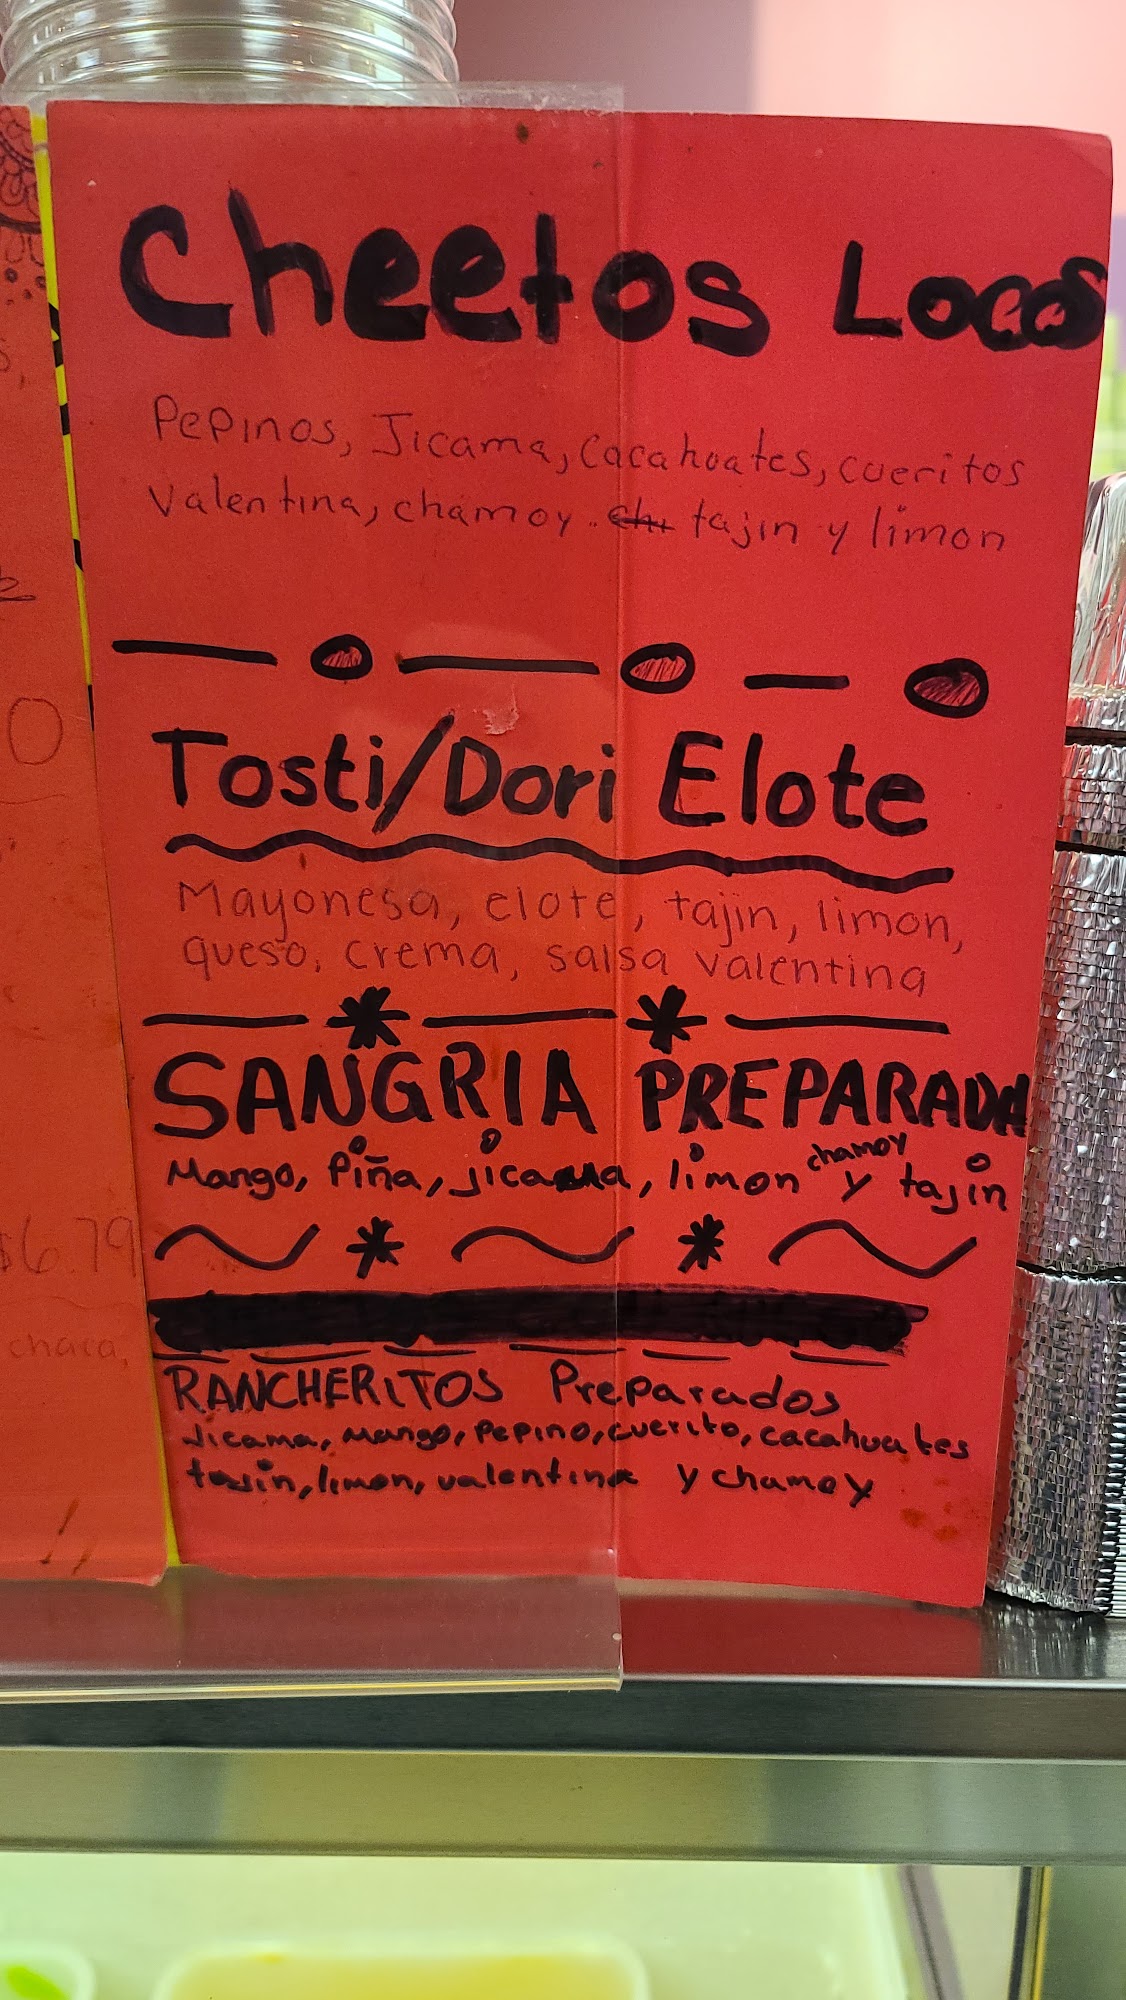 Cheetos Locos
Pepinos, Jicama, Cacahuates, cueritos
Valentina, chamoy.. tajin y limon
Tosti/Dori Elote
Mayonesa, elote, tajin, limon,
queso, crema, salsa valentina
SANGRIA PREPARADA
Mango, Piña, jicama, limon chamoy y tajin
RANCHERITOS Preparados
Jicama, mango, pepino, cuerito, cacahuates
tajin, limon, valentina y chamoy
$6.79
chaca,